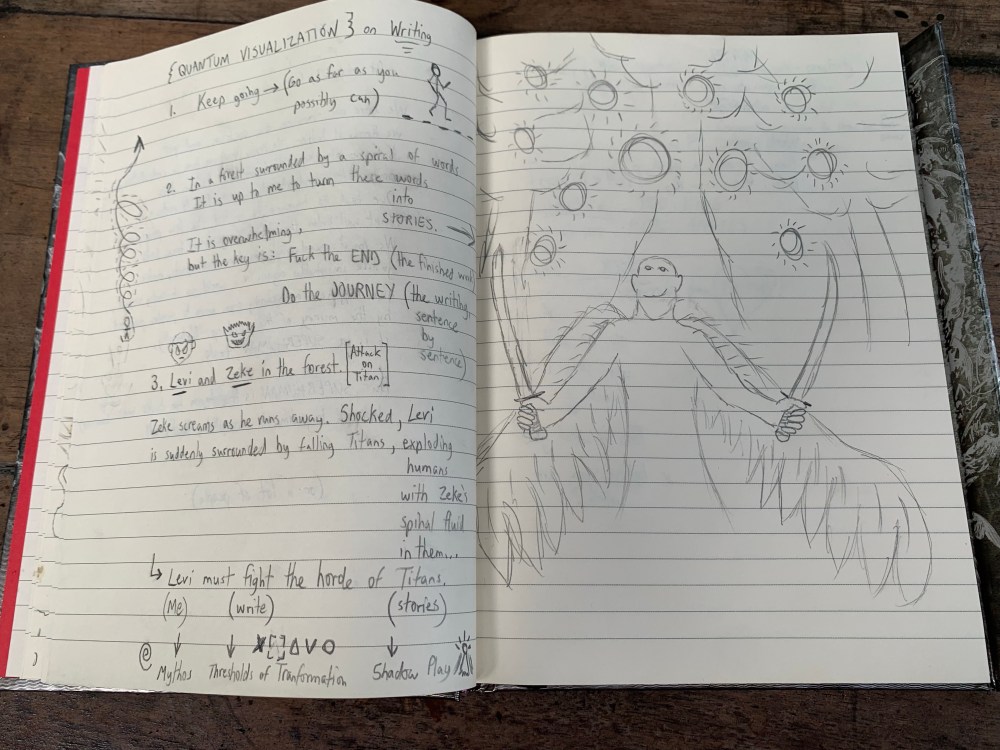 {QUANTUM VISUALIZATION} on Writing
1. Keep going → (Go as far as you
possibly can)
2. In a forest surrounded by a spiral of words
It is up to me to turn these words
into
STORIES. →
It is overwhelming,
but the key is: Fuck the END (the finished
Do the JOURNEY (the writing,
sentence
by
sentence)
3. Levi and Zeke in the forest. [Attack
on
Titan]
Zeke screams as he runs away. Shocked, Levi
is suddenly surrounded by falling Titans, exploding
humans
with Zeke's
spinal fluid
in them...
↳ Levi must fight the horde of Titans.
(Me) (write) (stories)
Mythos Thresholds of Tranformation Shadow Play